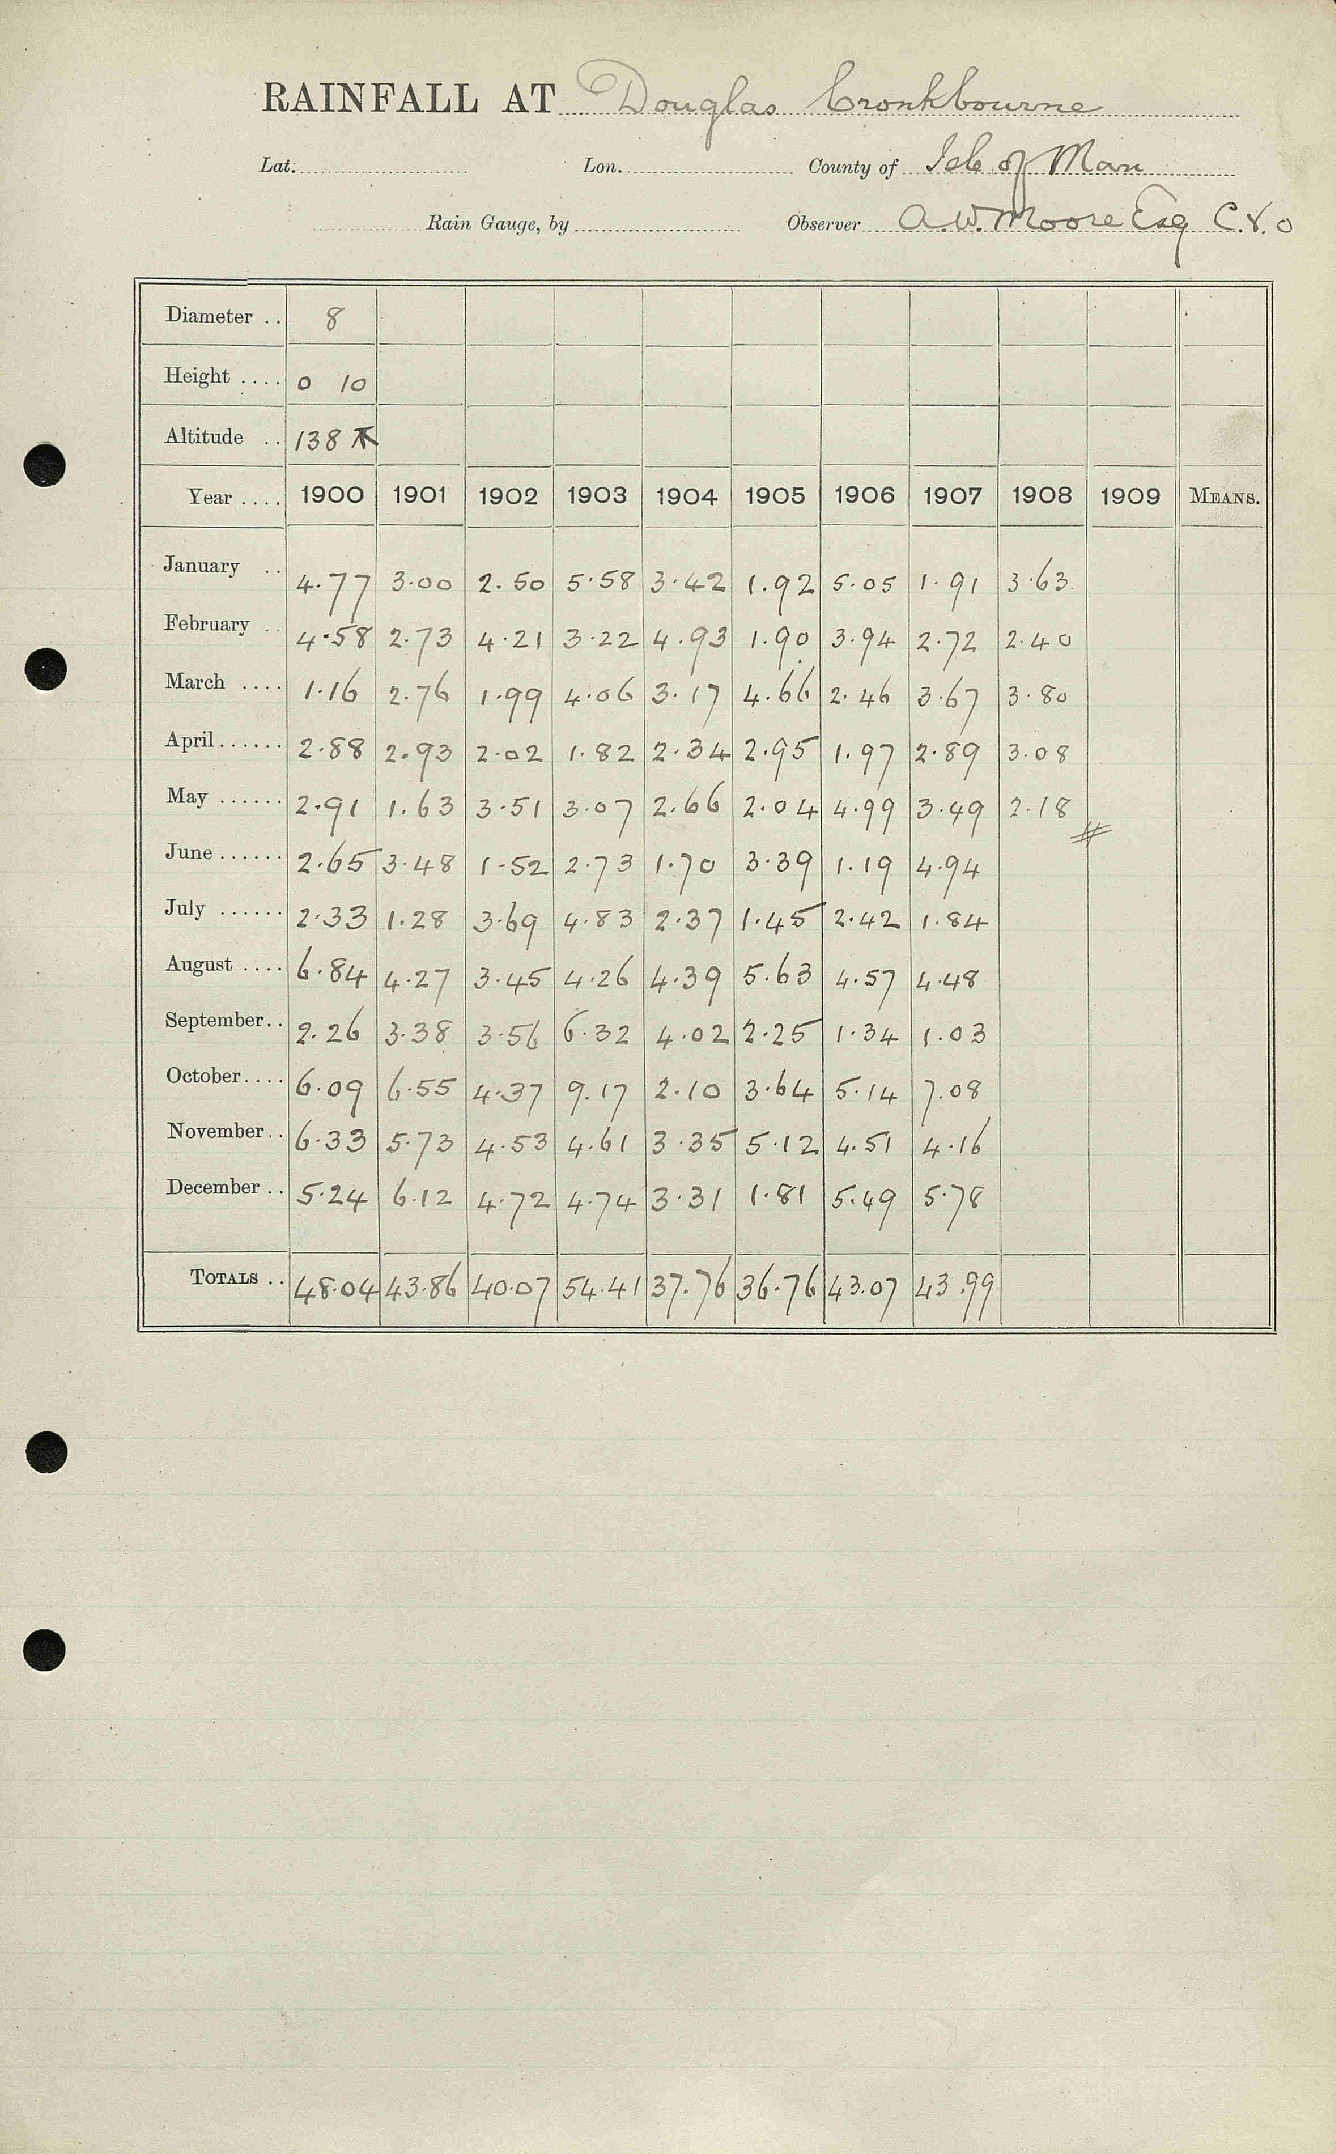 RAINFALL AT Douglas Cronkbourne
Lat. Lon. County of Isle of Man
Rain Gauge, by Observer A.W. Moore Esq C.V.O
Diameter .. 8
Height .... 0 10
Altitude .. 138
Year .... 1900 1901 1902 1903 1904 1905 1906 1907 1908 1909 MEANS.
January .. 4.77 3.00 2.50 5.58 3.42 1.92 5.05 1.91 3.63
February .. 4.58 2.73 4.21 3.22 4.93 1.90 3.94 2.72 2.40
March .... 1.16 2.76 1.99 4.06 3.17 4.66 2.46 3.67 3.80
April...... 2.88 2.93 2.02 1.82 2.34 2.95 1.97 2.89 3.08
May ...... 2.91 1.63 3.51 3.07 2.66 2.04 4.99 3.49 2.18
June...... 2.65 3.48 1.52 2.73 1.70 3.39 1.19 4.94
July ...... 2.33 1.28 3.69 4.83 2.37 1.45 2.42 1.84
August .... 6.84 4.27 3.45 4.26 4.39 5.63 4.57 4.48
September.. 2.26 3.38 3.56 6.32 4.02 2.25 1.34 1.03
October.... 6.09 6.55 4.37 9.17 2.10 3.64 5.14 7.08
November.. 6.33 5.73 4.53 4.61 3.35 5.12 4.51 4.16
December.. 5.24 6.12 4.72 4.74 3.31 1.81 5.49 5.78
TOTALS .. 48.04 43.86 40.07 54.41 37.76 36.76 43.07 43.99